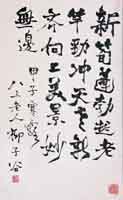 新笋蓬勃超老
竿劲冲天
齐向上美景妙
無邊
甲子寒露
八上老人柳子谷